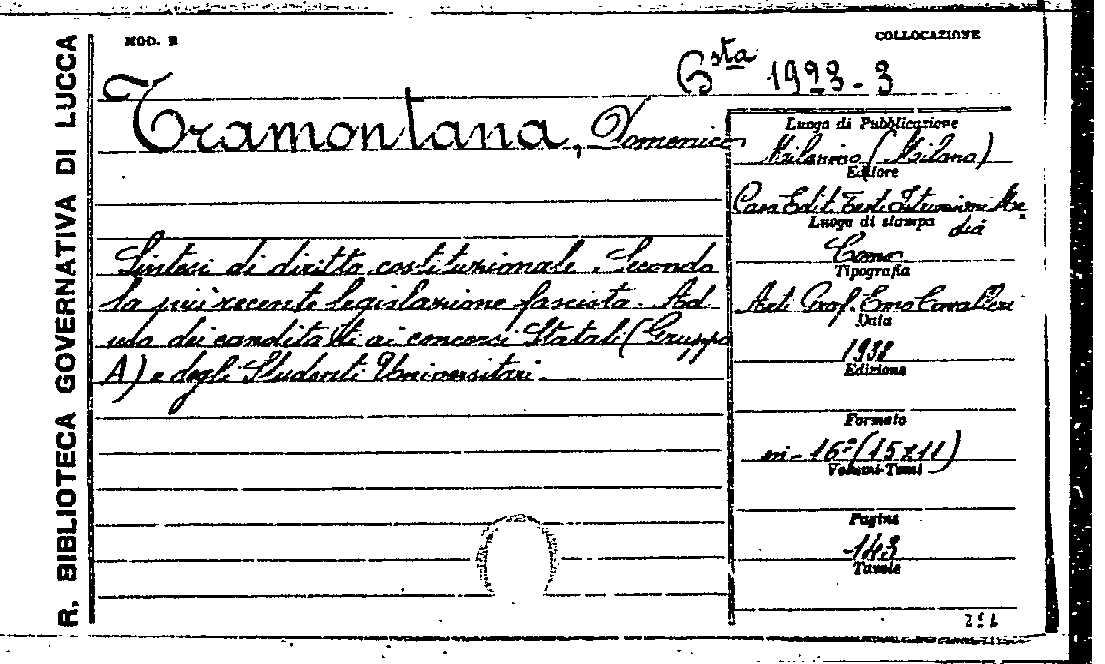 R. BIBLIOTECA GOVERNATIVA DI LUCCA
MOD. B
COLLOCAZIONE
Bsta 1923-3
Tramontana, Domenico
Sintesi di diritto costituzionale. Secondo
la più recente legislazione fascista. Ad
uso dei candidatti ai concorsi Statali (Gruppo
A) e degli Studenti Universitari.
Luogo di Pubblicazione
Milanino (Milano)
Editore
Casa Edit. Testi Istruzioni Me
dia
Luogo di stampa
Como
Tipografia
Arti Graf. Emo Cavalleri
Data
1938
Edizione
Formato
in-16º (15x11)
Volumi-Tomi
Pagine
143
Tavole